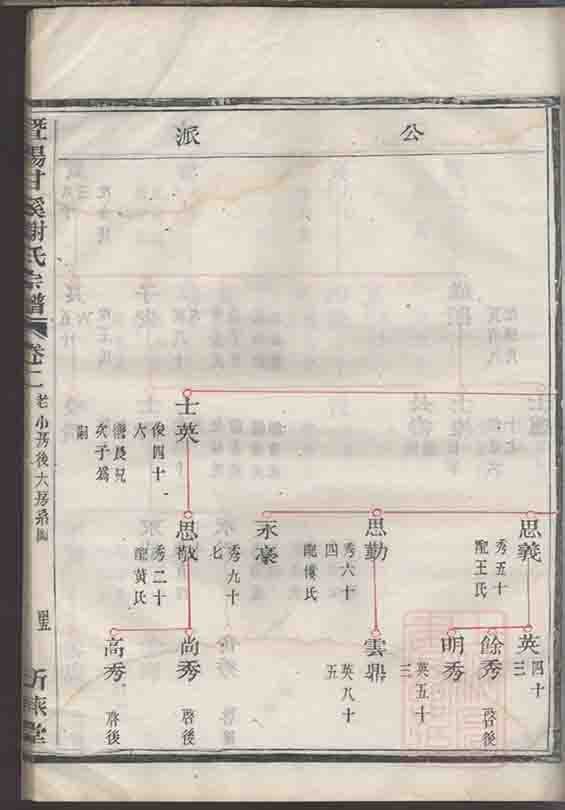 公派
士英
俊四十
六
継長兄
炎子爲
嗣
思義
秀五十
配王氏
思勤
秀六十
四
配樓氏
永豪
秀九十
七
思敬
秀二十
配黃氏
英
四十
三
餘秀
啓後
明秀
英五十
三
雲鼎
英八十
五
尚秀
啓後
高秀
啓後
暨陽甘溪謝氏宗譜
卷二
老小房後大房系圖